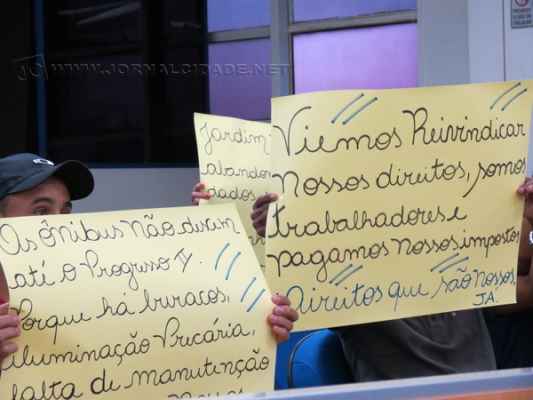 WWW.JORNALCIDADE.NET
Jardim
abando
nados
Viemos Reivindicar
nossos direitos, somos
trabalhadores e
pagamos nossos impostos
Direitos que são nossos
JÁ.
Os ônibus não descem
até o Progresso IV.
Porque há buracos,
iluminação Precária,
falta de manutenção